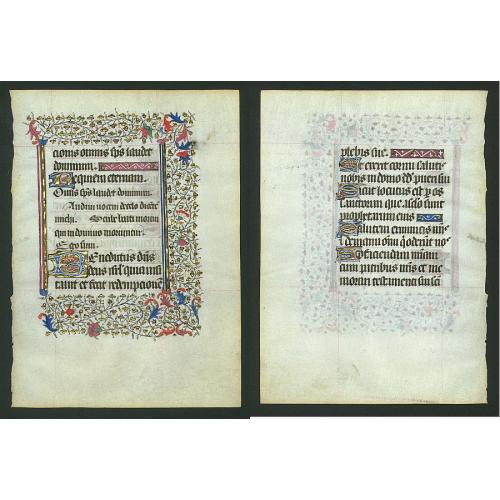 cionis omnis sps laudet
dominum.
Requiem eternam.
Omīs sps laudet dominum.
Audivi vocem de celo dicēte
michi. Beati mortui
qui in domino moriuntur.
Ego sum.
Benedictus dn̄s
deus isrl quia visi
tauit et fecit redemptionē
plebis sue.
Et erexit cornu salutis
nobis in domo dd pueri sui
Sicut locutus est p os
sanctorum qui a seculo sunt
prophetarum eius
Salutem ex inimicis nr̄is
et de manu omīu qui oderūt nos
Ad faciendam mīam
cum patribus nr̄is et me
morari testamenti sui sci